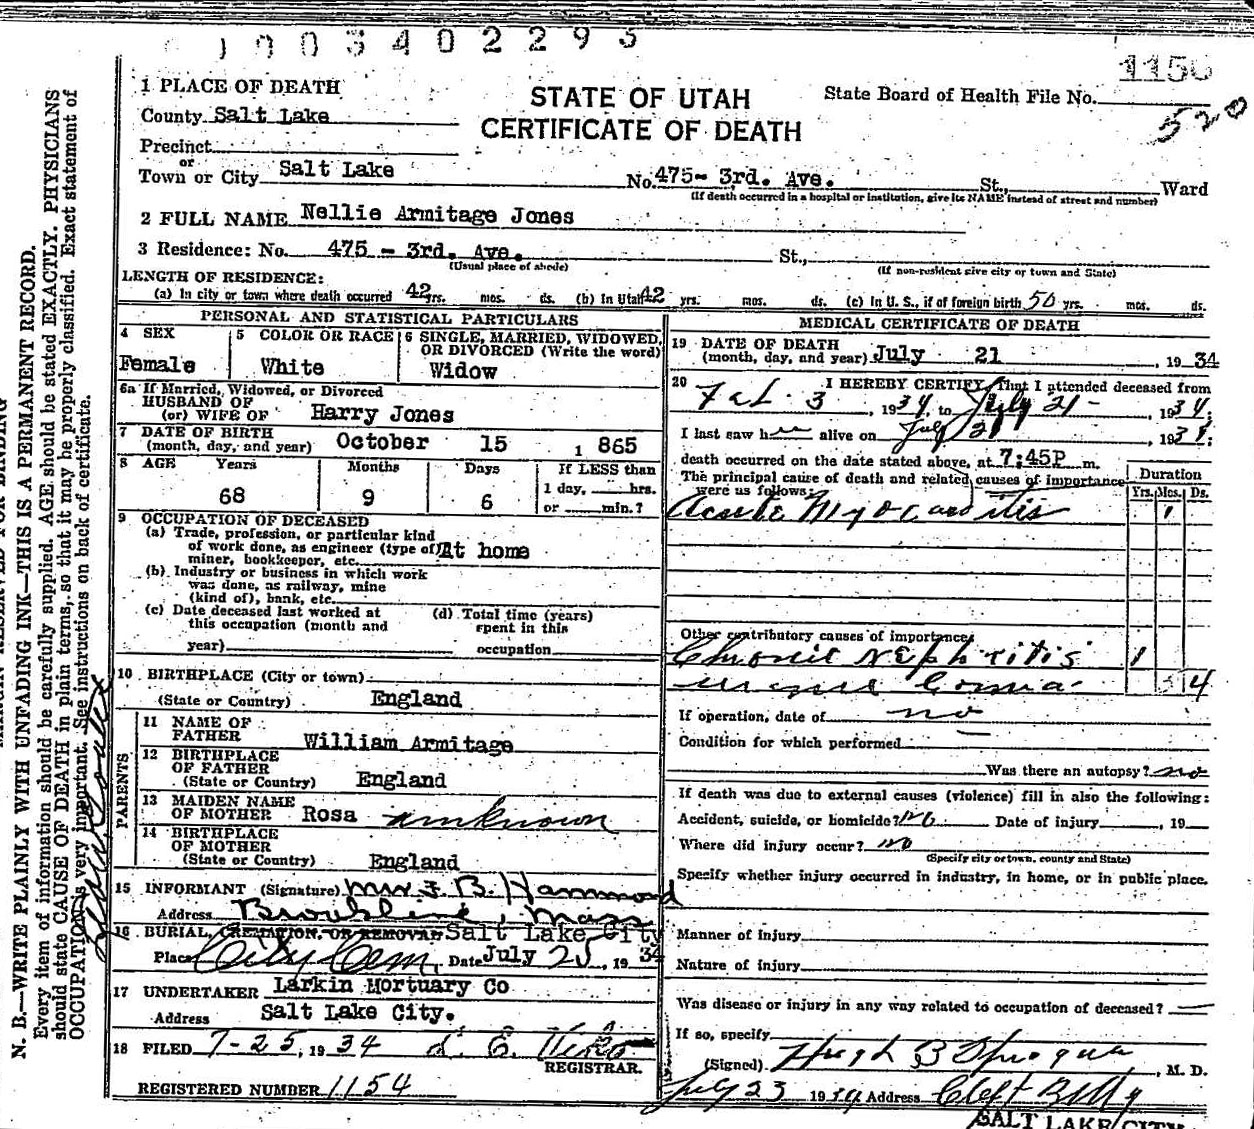 003402293
1156
520
1 PLACE OF DEATH
County Salt Lake
Precinct
or
Town or City Salt Lake No. 475- 3rd. Ave. St., Ward
STATE OF UTAH
CERTIFICATE OF DEATH
State Board of Health File No.
(If death occurred in a hospital or institution, give its NAME instead of street and number)
2 FULL NAME Nellie Armitage Jones
3 Residence: No. 475 - 3rd. Ave. St.,
(Usual place of abode) (If non-resident give city or town and State)
LENGTH OF RESIDENCE:
(a) In city or town where death occurred 42 yrs. mos. ds. (b) In Utah 42 yrs. mos. ds. (c) In U. S., if of foreign birth 50 yrs. mos. ds.
PERSONAL AND STATISTICAL PARTICULARS
4 SEX
Female
5 COLOR OR RACE
White
6 SINGLE, MARRIED, WIDOWED,
OR DIVORCED (Write the word)
Widow
6a If Married, Widowed, or Divorced
HUSBAND OF
(or) WIFE OF Harry Jones
7 DATE OF BIRTH
(month, day, and year) October 15 1865
8 AGE Years Months Days If LESS than
1 day, hrs.
68 9 6 or min.?
9 OCCUPATION OF DECEASED
(a) Trade, profession, or particular kind
of work done, as engineer (type of) At home
miner, bookkeeper, etc.
(b) Industry or business in which work
was done, as railway, mine
(kind of), bank, etc.
(c) Date deceased last worked at
this occupation (month and
year)
(d) Total time (years)
spent in this
occupation
10 BIRTHPLACE (City or town)
(State or Country) England
PARENTS
11 NAME OF
FATHER William Armitage
12 BIRTHPLACE
OF FATHER
(State or Country) England
13 MAIDEN NAME
OF MOTHER Rosa unknown
14 BIRTHPLACE
OF MOTHER
(State or Country) England
15 INFORMANT (Signature) Mrs F. B. Hammond
Address Brookline, Mass
16 BURIAL, CREMATION, OR REMOVAL Salt Lake City
Place City Cem, Date July 25, 1934
17 UNDERTAKER Larkin Mortuary Co
Address Salt Lake City.
18 FILED 7-25, 1934
REGISTRAR.
REGISTERED NUMBER 1154
MEDICAL CERTIFICATE OF DEATH
19 DATE OF DEATH
(month, day, and year) July 21, 1934
20 I HEREBY CERTIFY, That I attended deceased from
Feb. 3, 1934, to July 21-, 1934;
I last saw her alive on July 21, 1934;
death occurred on the date stated above, at 7:45P m.
The principal cause of death and related causes of importance
were us follows:
Duration
Yrs. Mos. Ds.
Acute Myocarditis 1
Other contributory causes of importance
Chronic Nephritis 1
Coma 4
If operation, date of no
Condition for which performed
Was there an autopsy? no
If death was due to external causes (violence) fill in also the following:
Accident, suicide, or homicide? no Date of injury, 19
Where did injury occur? no
(Specify city or town, county and State)
Specify whether injury occurred in industry, in home, or in public place.
Manner of injury
Nature of injury
Was disease or injury in any way related to occupation of deceased?
If so, specify
(Signed) Hugh B Sprague, M. D.
July 23 1934 Address Clift Bldg
SALT LAKE CITY
N. B.—WRITE PLAINLY WITH UNFADING INK—THIS IS A PERMANENT RECORD.
Every item of information should be carefully supplied. AGE should be stated EXACTLY. PHYSICIANS
should state CAUSE OF DEATH in plain terms, so that it may be properly classified. Exact statement of
OCCUPATION is very important. See instructions on back of certificate.